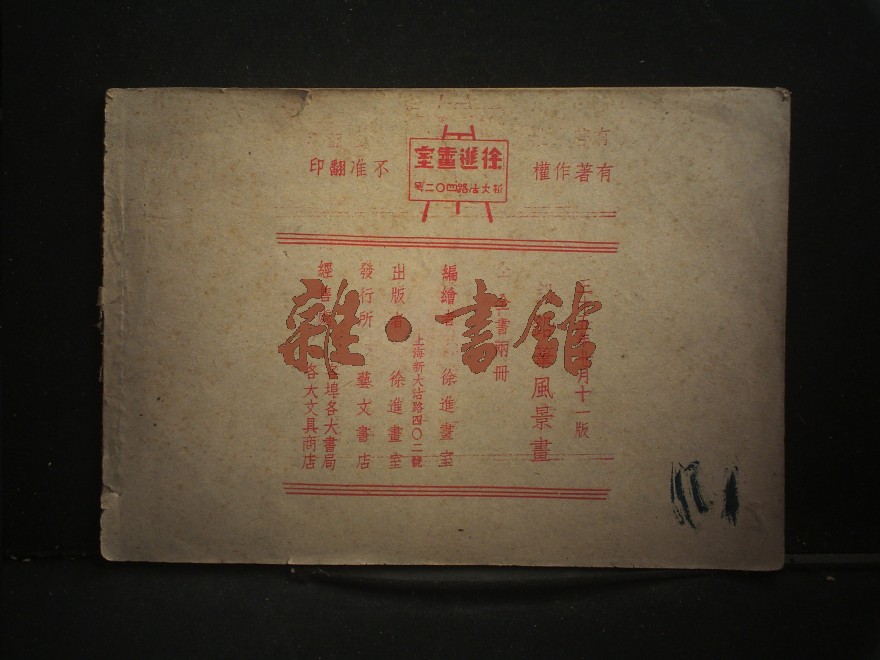 有著作權
徐進畫室
新大沽路四〇二號
不准翻印
三十 年 月十一版
風景畫
全書兩冊
編繪者 徐進畫室
上海新大沽路四〇二號
出版者 徐進畫室
發行所 藝文書店
經售處 各埠各大書局
各大文具商店
雜·書館